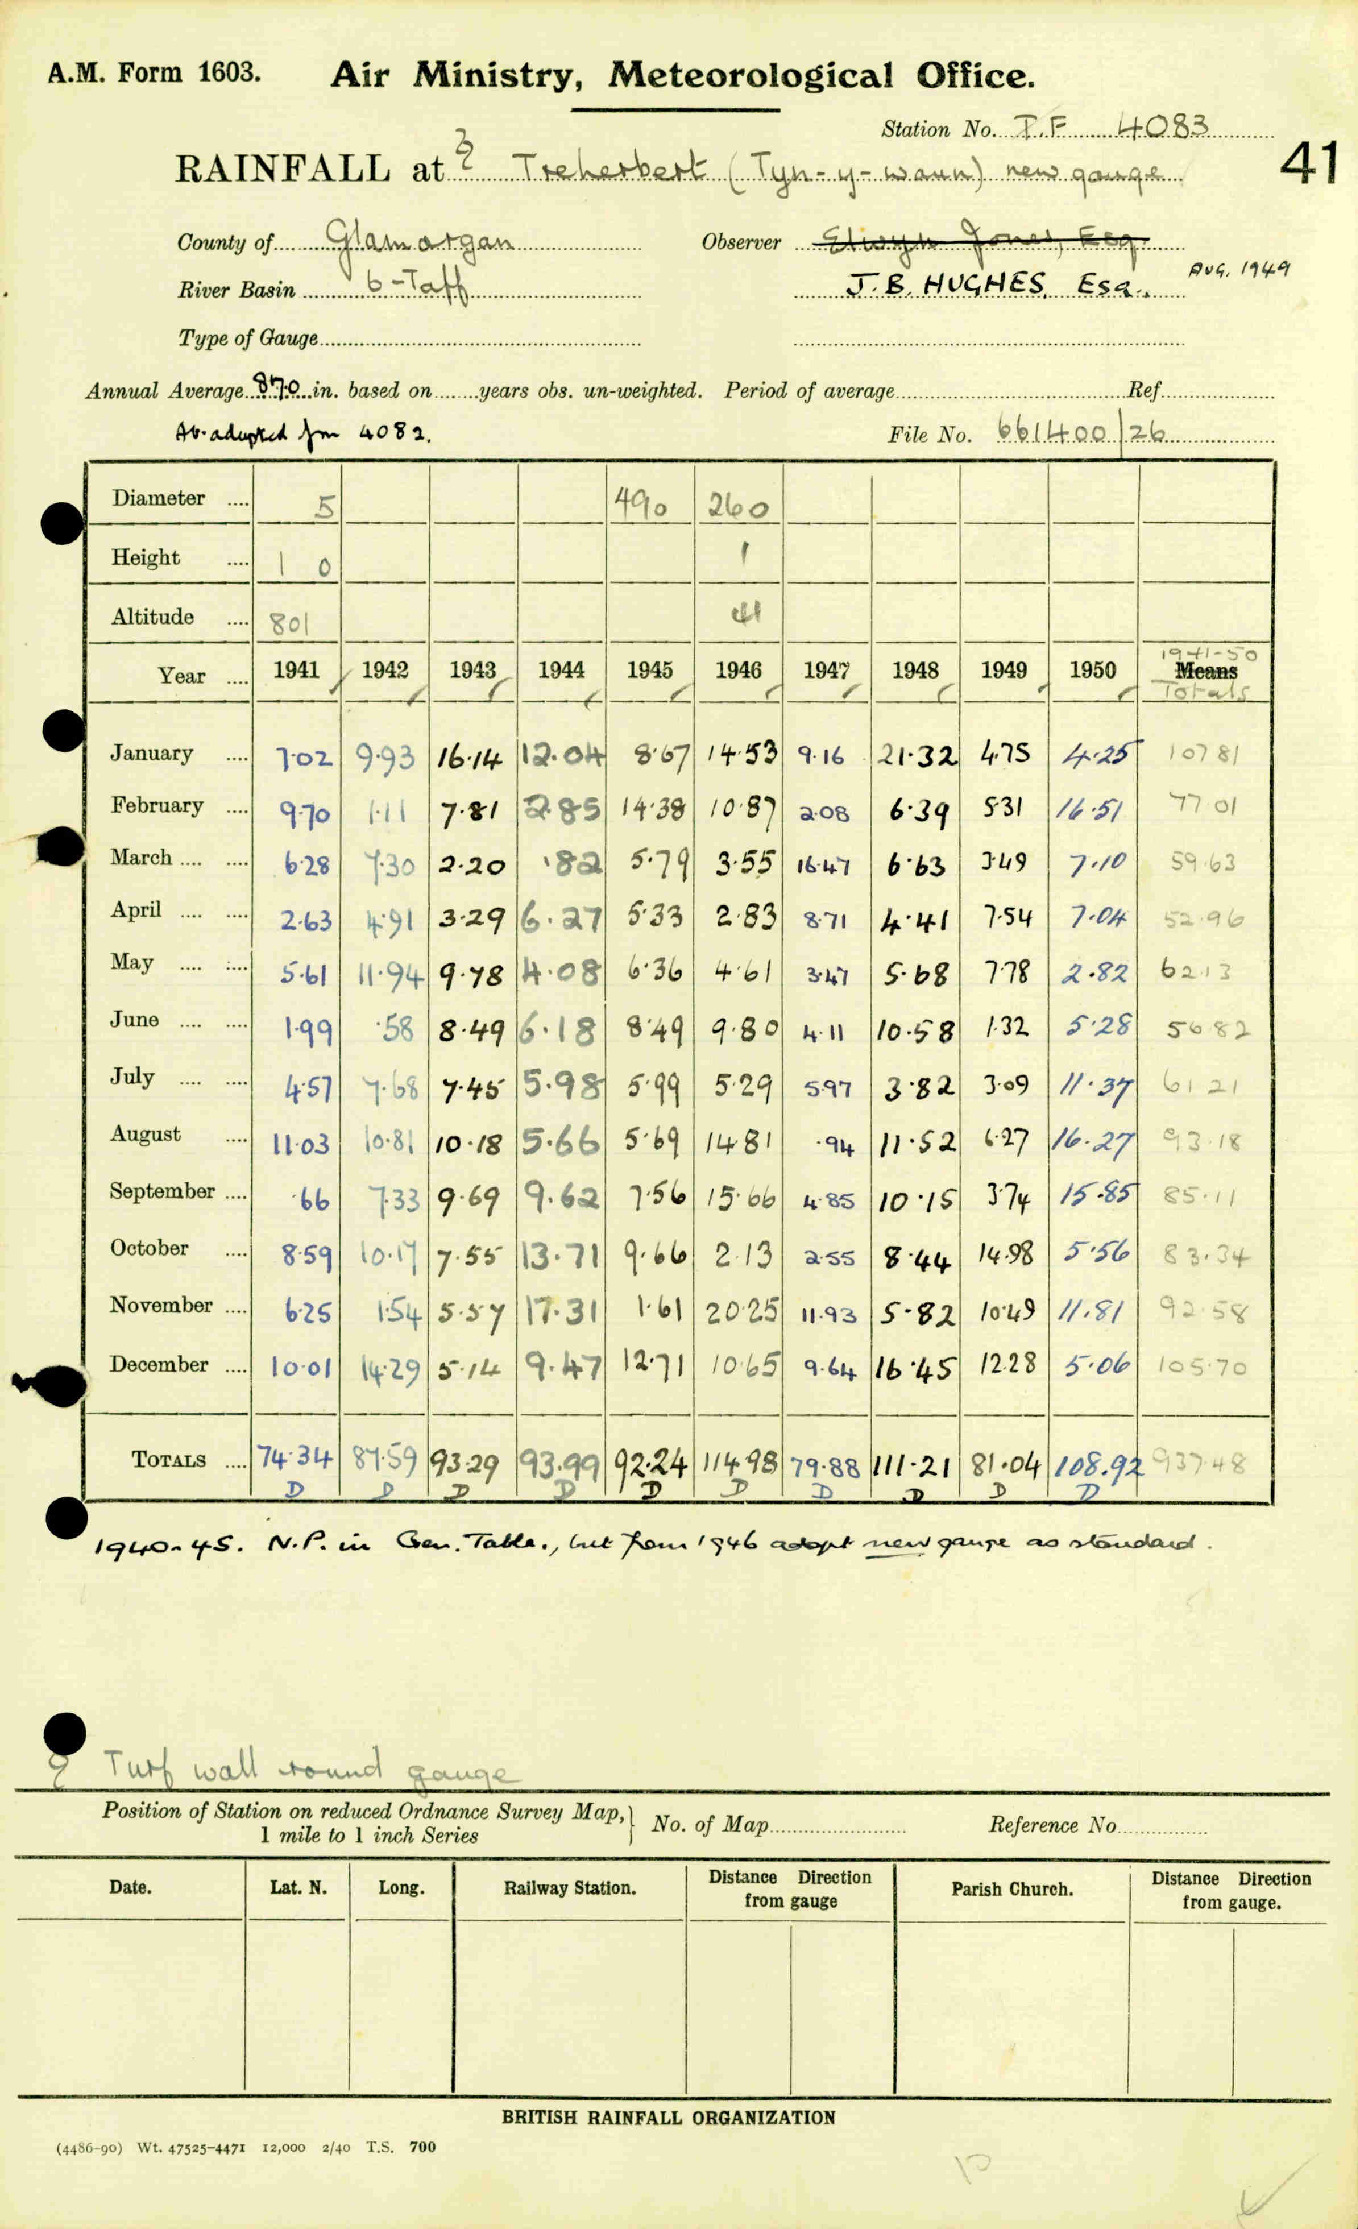 A.M. Form 1603. Air Ministry, Meteorological Office.
Station No. P.F 4083
41
RAINFALL at Treherbert (Tyn-y-waun) new gauge
County of Glamorgan Observer Elwyn Jones, Esq.
River Basin 6-Taff J.B. HUGHES, Esq., AUG. 1949
Type of Gauge
Annual Average 87.0 in. based on years obs. un-weighted. Period of average Ref.
Av. adopted from 4082. File No. 661400/26
Diameter .... 5 490 260
Height .... 1 0 1
Altitude .... 801 41
Year .... 1941 1942 1943 1944 1945 1946 1947 1948 1949 1950 1941-50 Means Totals
January .... 7.02 9.93 16.14 12.04 8.67 14.53 9.16 21.32 4.75 4.25 107.81
February .... 9.70 1.11 7.81 2.85 14.38 10.87 2.08 6.39 5.31 16.51 77.01
March .... .... 6.28 7.30 2.20 .82 5.79 3.55 16.47 6.63 3.49 7.10 59.63
April .... .... 2.63 4.91 3.29 6.27 5.33 2.83 8.71 4.41 7.54 7.04 52.96
May .... .... 5.61 11.94 9.78 4.08 6.36 4.61 3.47 5.68 7.78 2.82 62.13
June .... .... 1.99 .58 8.49 6.18 8.49 9.80 4.11 10.58 1.32 5.28 56.82
July .... .... 4.57 7.68 7.45 5.98 5.99 5.29 5.97 3.82 3.09 11.37 61.21
August .... 11.03 10.81 10.18 5.66 5.69 14.81 .94 11.52 6.27 16.27 93.18
September .... .66 7.33 9.69 9.62 7.56 15.66 4.85 10.15 3.74 15.85 85.11
October .... 8.59 10.17 7.55 13.71 9.66 2.13 2.55 8.44 14.98 5.56 83.34
November .... 6.25 1.54 5.57 17.31 1.61 20.25 11.93 5.82 10.49 11.81 92.58
December .... 10.01 14.29 5.14 9.47 12.71 10.65 9.64 16.45 12.28 5.06 105.70
TOTALS .... 74.34 87.59 93.29 93.99 92.24 114.98 79.88 111.21 81.04 108.92 937.48
D D D D D D D D D D
1940-45. N.P. in Gen. Table., but from 1946 adopt new gauge as standard.
Turf wall round gauge
Position of Station on reduced Ordnance Survey Map, 1 mile to 1 inch Series No. of Map Reference No.
Date. Lat. N. Long. Railway Station. Distance Direction from gauge Parish Church. Distance Direction from gauge.
BRITISH RAINFALL ORGANIZATION
(4486-90) Wt. 47525-4471 12,000 2/40 T.S. 700